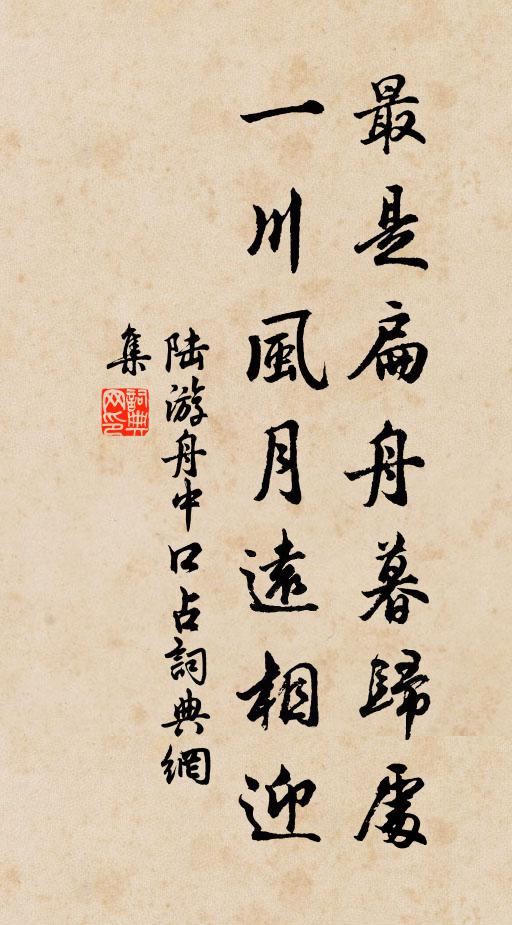 最是扁舟暮歸處
一川風月遠相迎
陆游舟中口占詞典網
集
詞典網印